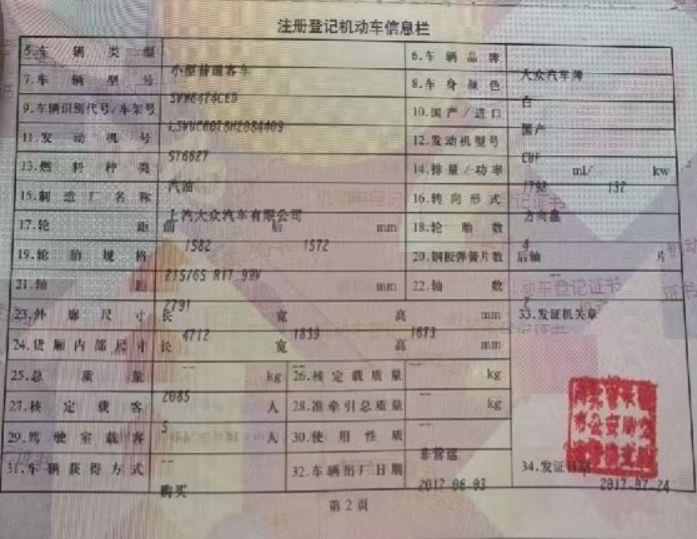 注册登记机动车信息栏
5.车辆类型 小型普通客车 6.车辆品牌 大众汽车牌
7.车辆型号 SVW6474CED 8.车身颜色 白
9.车辆识别代号/车架号 10.国产/进口 国产
11.发动机号 S76627 12.发动机型号
13.燃料种类 汽油 14.排量/功率 1798 ml/ 132 kw
15.制造厂名称 上汽大众汽车有限公司 16.转向形式 方向盘
17.轮距 前 1582 后 1572 mm 18.轮胎数 4
19.轮胎规格 215/65 R17 99V 20.钢板弹簧片数 后轴 -- 片
21.轴距 2791 mm 22.轴数 2
23.外廓尺寸 长 4712 宽 1839 高 1673 mm 33.发证机关章
24.货厢内部尺寸 长 -- 宽 -- 高 -- mm
25.总质量 2085 kg 26.核定载质量 -- kg
27.核定载客 5 人 28.准牵引总质量 -- kg
29.驾驶室载客 -- 人 30.使用性质 非营运
31.车辆获得方式 购买 32.车辆出厂日期 2017-06-03 34.发证日期 2017-07-24
第2页